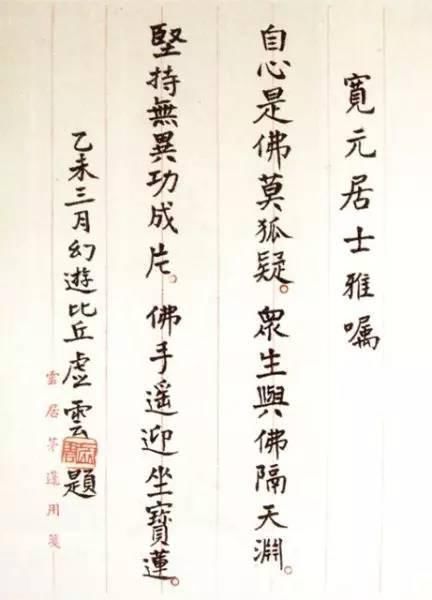 寬元居士雅嘱
自心是佛莫狐疑。眾生與佛隔天淵。
堅持無異功成片。佛手遥迎坐寶蓮。
乙未三月幻遊比丘虚雲題
雲居茅蓬用箋